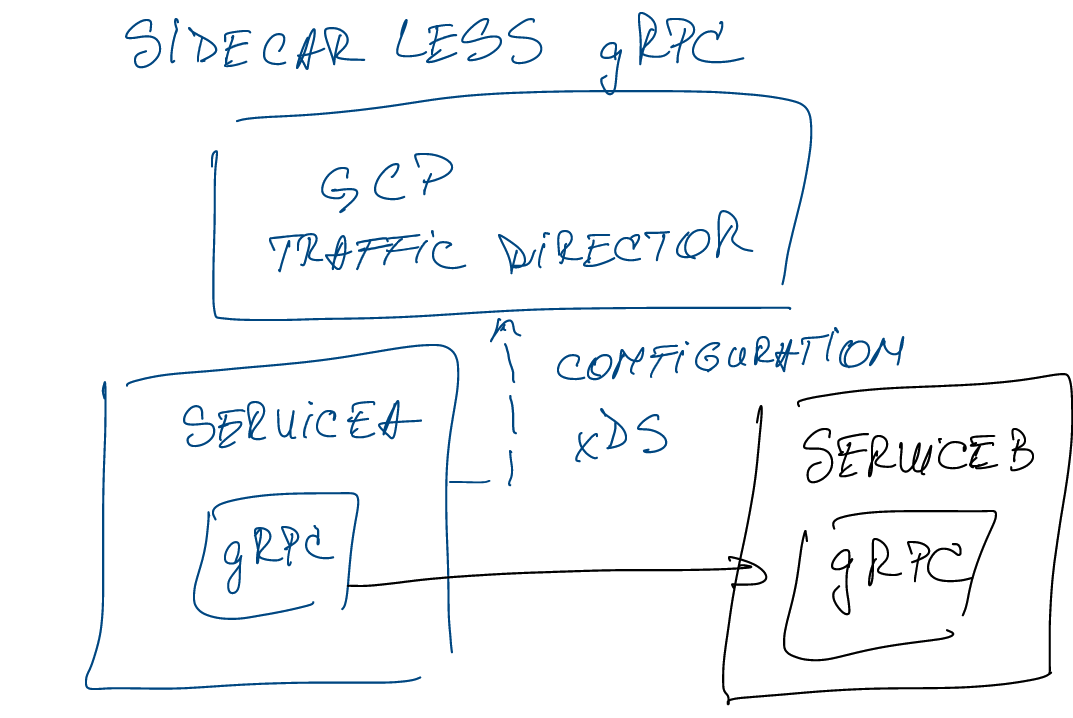 SIDECAR LESS gRPC
GCP
TRAFFIC DIRECTOR
CONFIGURATION
xDS
SERVICE A
gRPC
SERVICE B
gRPC